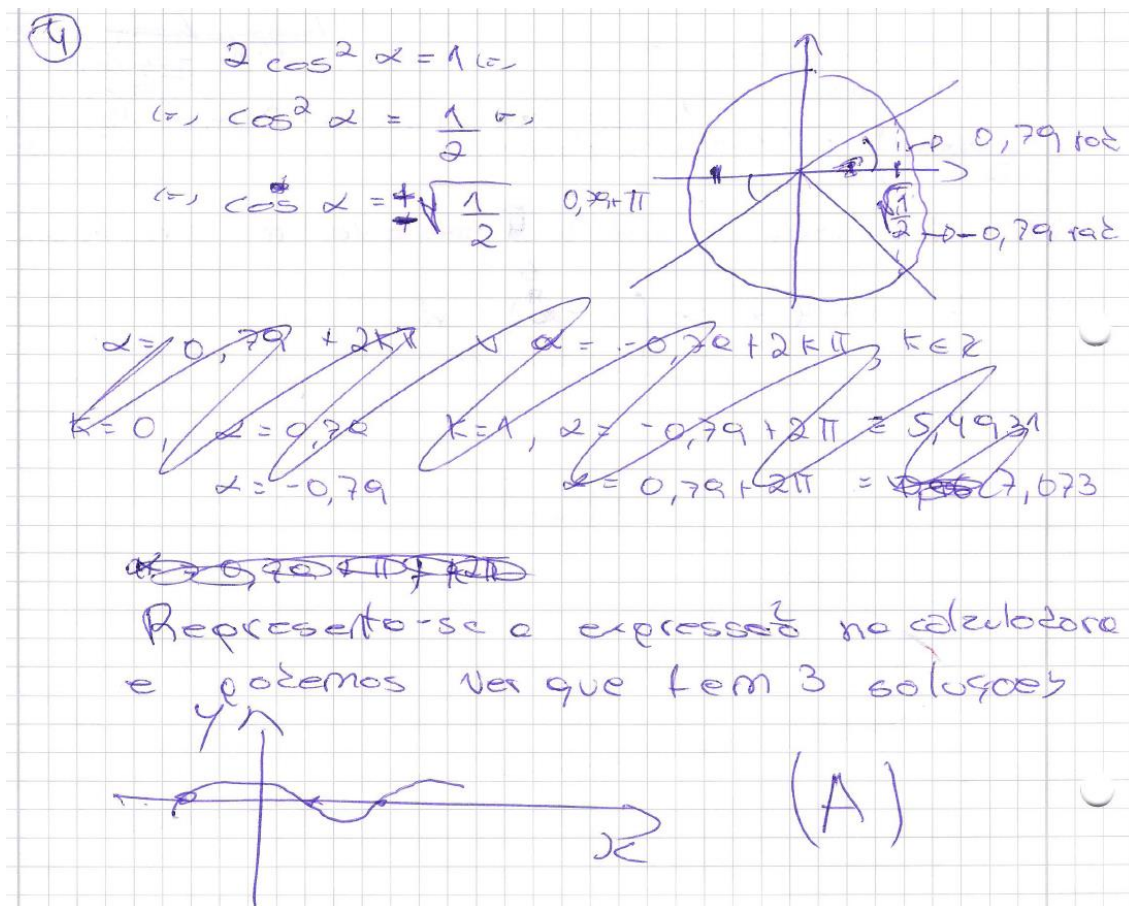 4
2 cos² α = 1 (=)
(=) cos² α = 1/2 (=)
(=) cos α = ±√(1/2)
0,79+π
0,79 rad
√(1/2)
-0,79 rad
α = 0,79 + 2kπ ∨ α = -0,79 + 2kπ, k∈Z
k=0, α = 0,79 k=1, α = -0,79 + 2π = 5,4931
α = -0,79 α = 0,79 + 2π = 7,073
Representa-se a expressão na calculadora
e podemos ver que tem 3 soluções
y
x
(A)